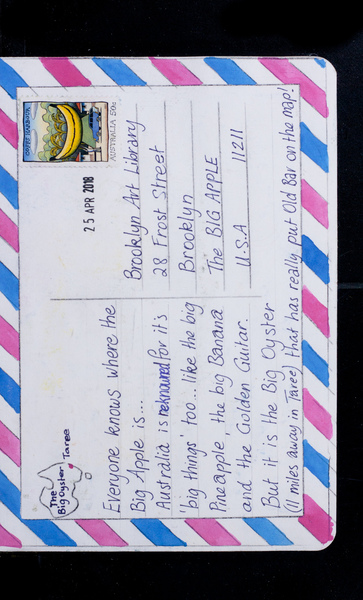 The
Big Oyster
Taree
Everyone knows where the
Big Apple is...
Australia is reknowned for it's
'big things' too... like the big
Pineapple, the big Banana
and the Golden Guitar.
But it is the Big Oyster
(11 miles away in Taree) that has really put Old Bar on the map!
AUSTRALIA 50c
25 APR 2018
Brooklyn Art Library
28 Frost Street
Brooklyn
The BIG APPLE
U.S.A 11211